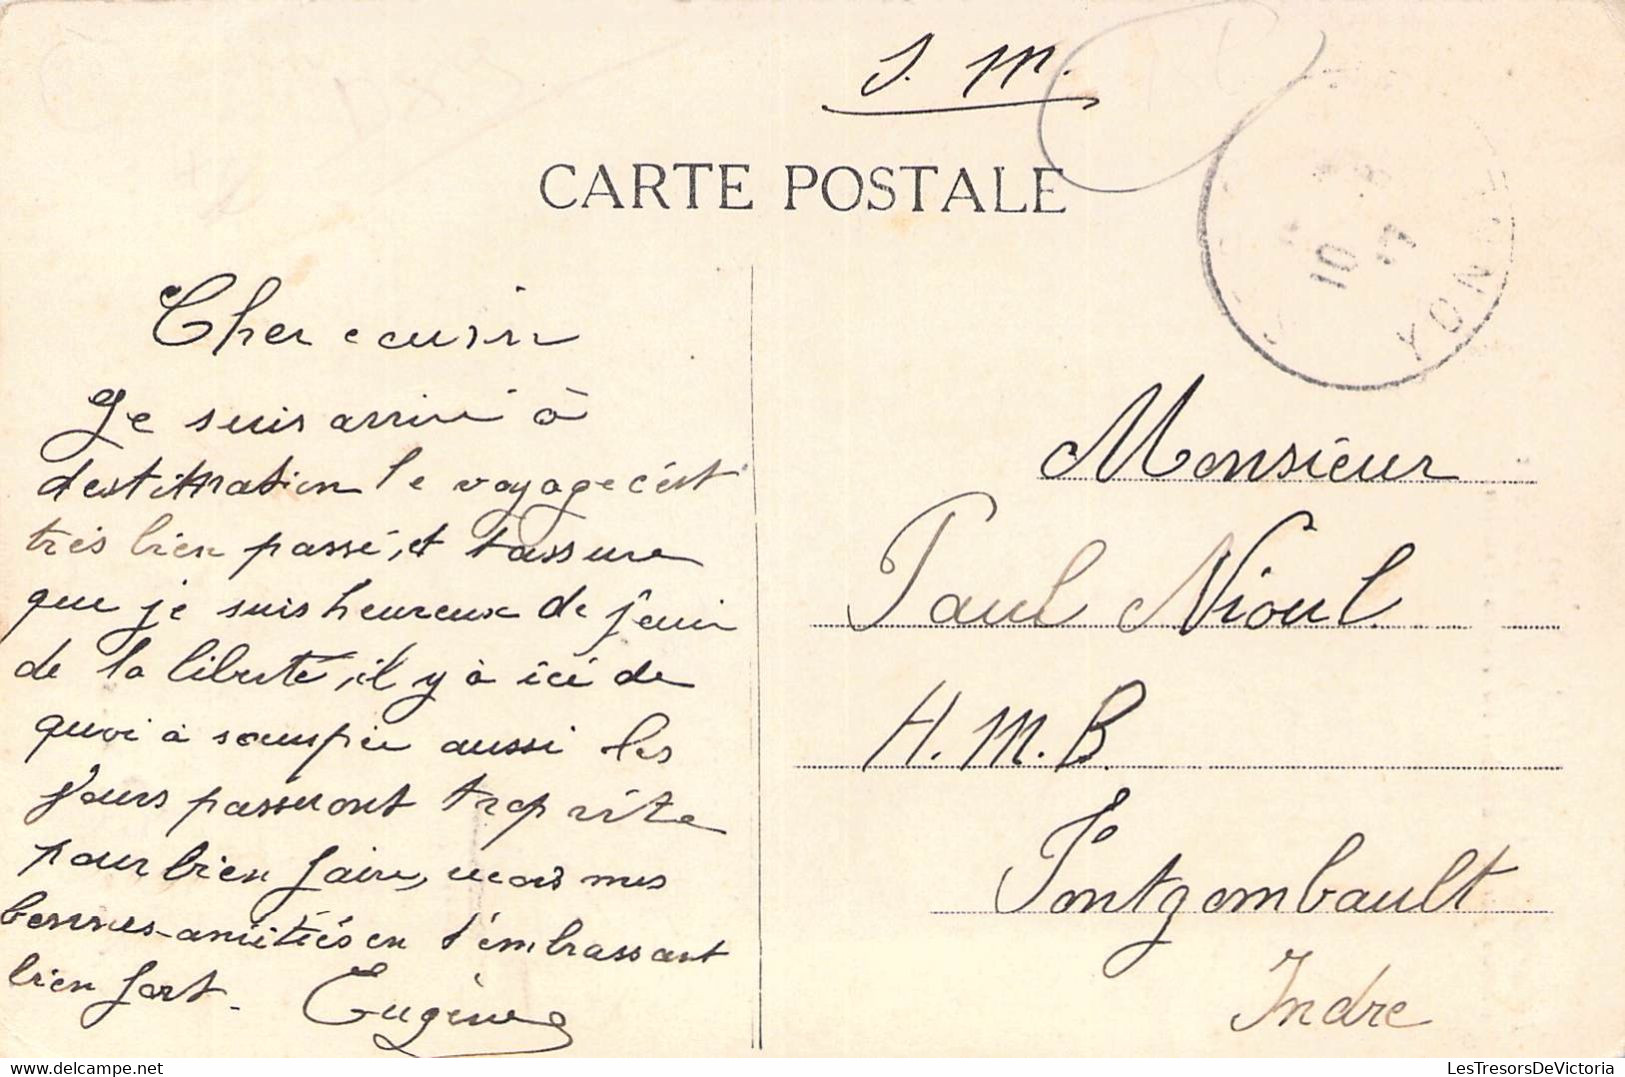 S. M.
CARTE POSTALE
10 - 8
17
YONNE
Cher cousin
Je suis arrivé à
destination le voyage c'est
très bien passé, et t'assure
que je suis heureux de jouir
de la liberté, il y à ici de
quoi à soupée aussi les
jours passeront trop vite
pour bien faire, mais mes
bonnes amitiés en t'embrassant
bien fort.
Eugène
Monsieur
Paul Nioul
H. M. B.
Pontgombault
Indre
LesTresorsDeVictoria